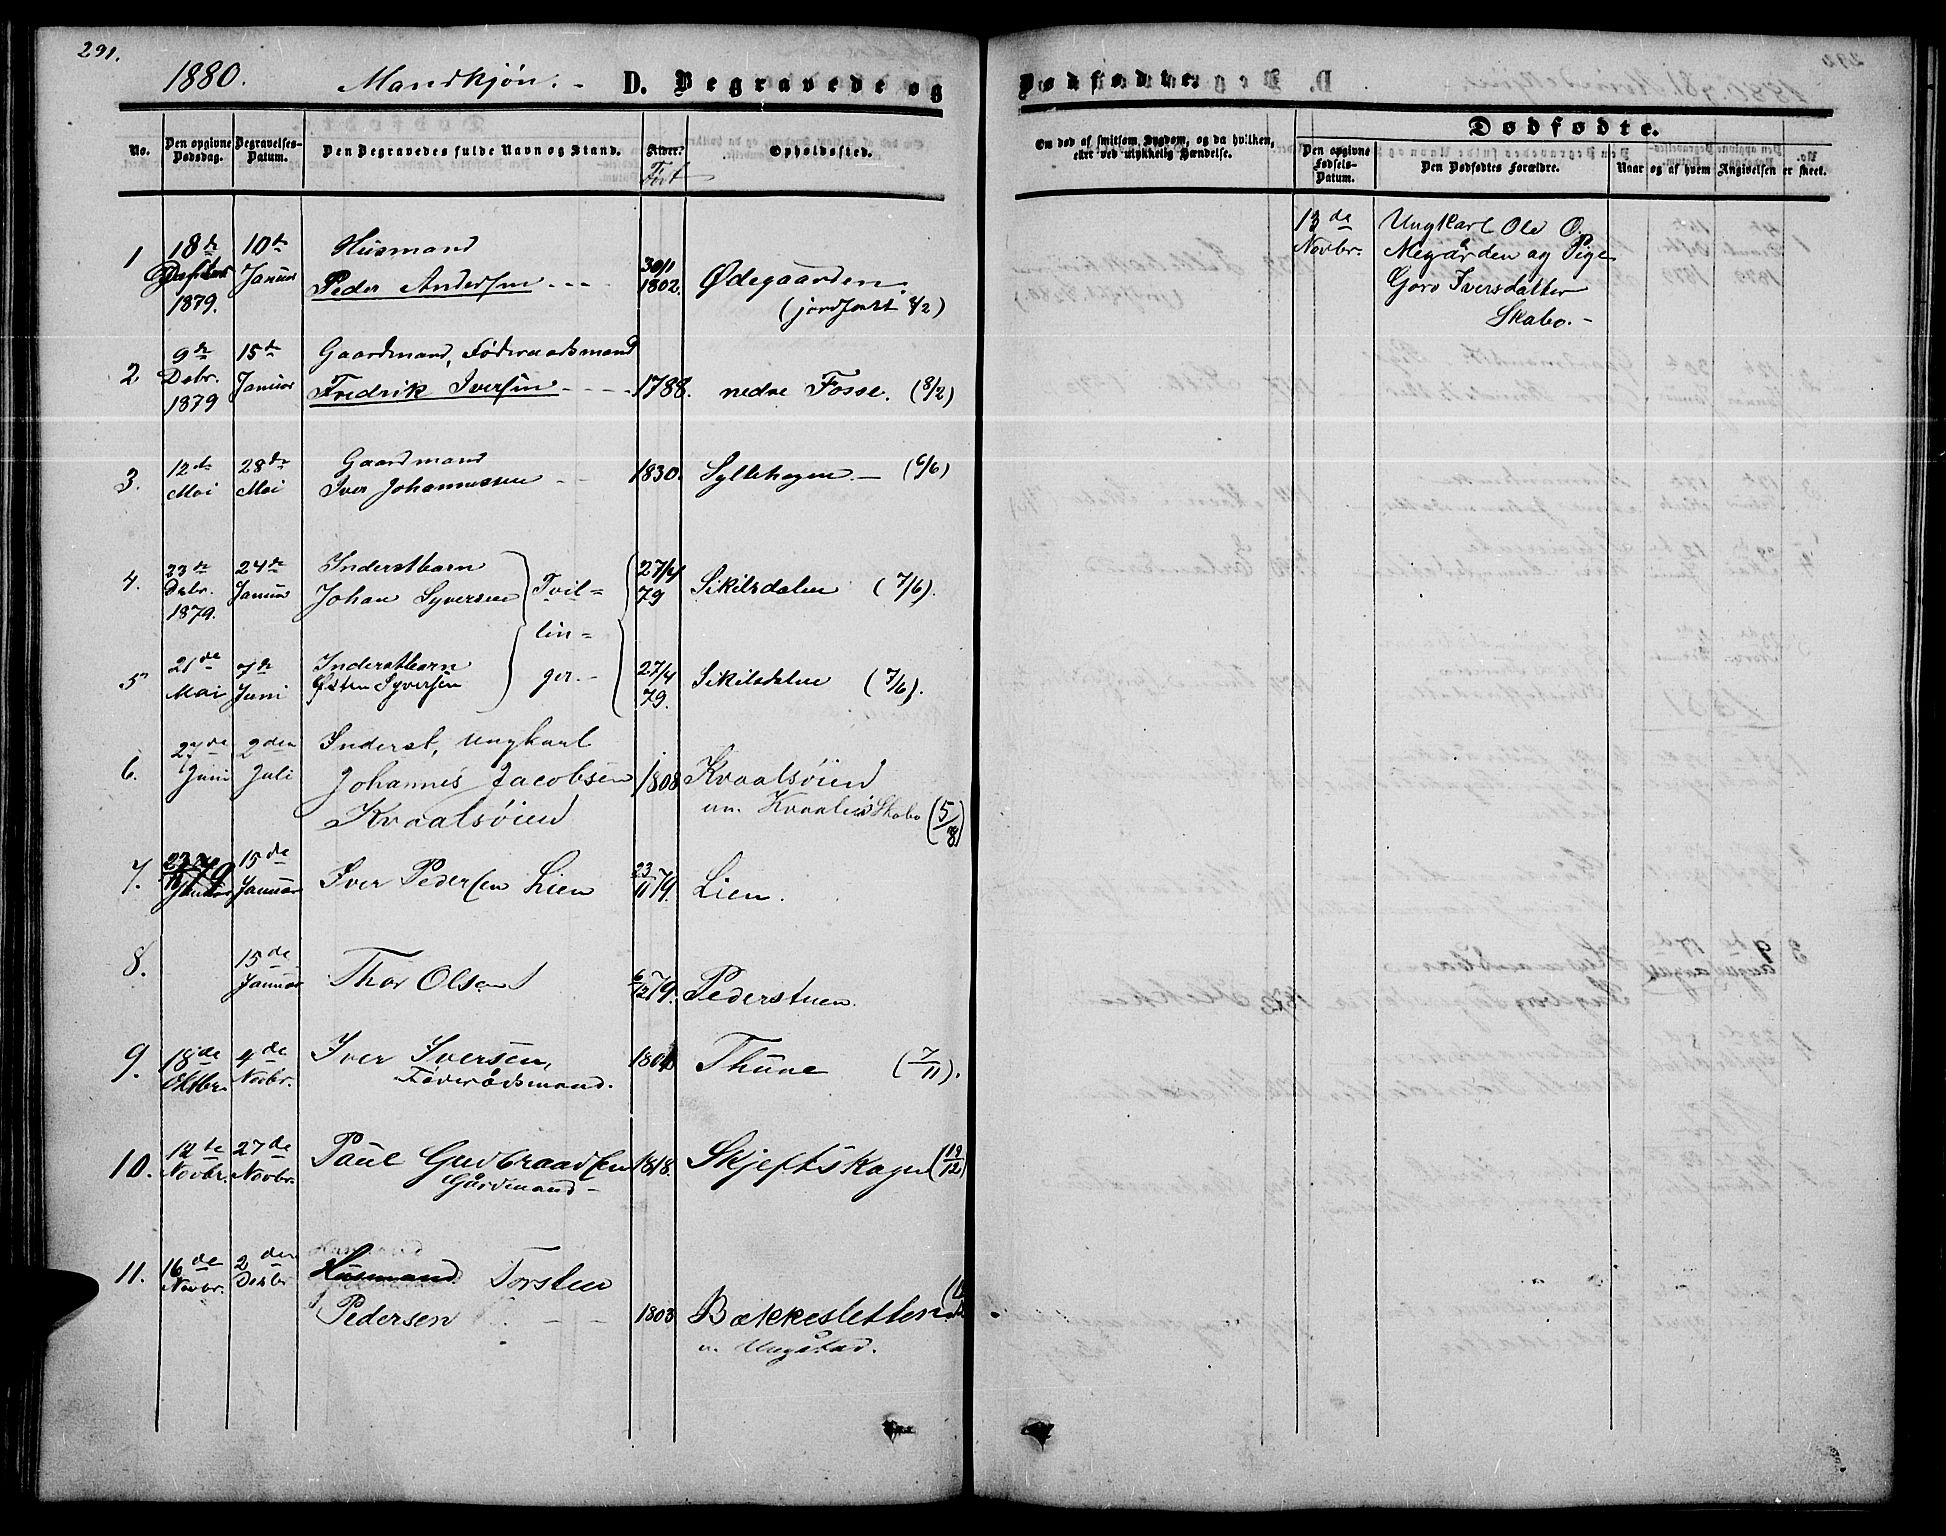 291.
1880. Mandkjøn. D. Begravede og Dødfødte.
No.
Den opgivne Dødsdag.
Begravelses-Datum.
Den Begravedes fulde Navn og Stand.
Alder.
Født
Opholdssted.
Om død af smitsom Sygdom, og da hvilken, eller ved ulykkelig Hændelse.
Dødfødte.
Den opgivne Fødsels-Datum.
Den Dødfødtes Forældre.
Naar og af hvem Angivelsen er skeet.
1 18de 10de Husmand
1879. Januar Peder Andersen 30/1 1802. Ødegaarden.
(jordfæstet 8/2)
2 9de 15de Gaardmand, Føderaadsmand
Debr. 1879 Januar Fredrik Iversen 1788. nedre Fosse. (8/2)
3. 12de 28de Gaardmand
Mai Mai Iver Johannessen 1830. Syllehagen. (6/6)
4. 23de 24de Inderstbarn
Debr. 1879. Januar Johan Syversen Tvil= 27/4 79 Sikilsdalen (7/6).
lin=
5 21de 7de Inderstbarn
Mai Juni Østen Syversen ger. 27/4 79. Sikilsdalen (7/6).
6. 27de 2den Inderst, Ungkarl
Juni Juli Johannes Jacobsen 1808 Kvaalsøien
Kvaalsøien un. Kvaalen Skabo (5/8)
7. 15de
Januar Iver Pedersen Lien 23/11 79. Lien.
8. 15de
Januar Thor Olsen 6/12 79. Pederstuen.
9. 18de 4de Iver Iversen, Thune (7/11).
Oktbr. Novbr. Føderådsmand.
10. 12te 27de Paul Gudbraadsen 1818. Skjeftskagen (12/12)
Novbr. Novbr. Gårdmand
11. 16de 2den Husmand Torsten
Novbr. Desbr Pedersen 1803 Bækkesletten
u. Ungstad.
13de Ungkarl Ole O.
Novbr. Megården og Pige
Goro Iversdatter
Skabo.